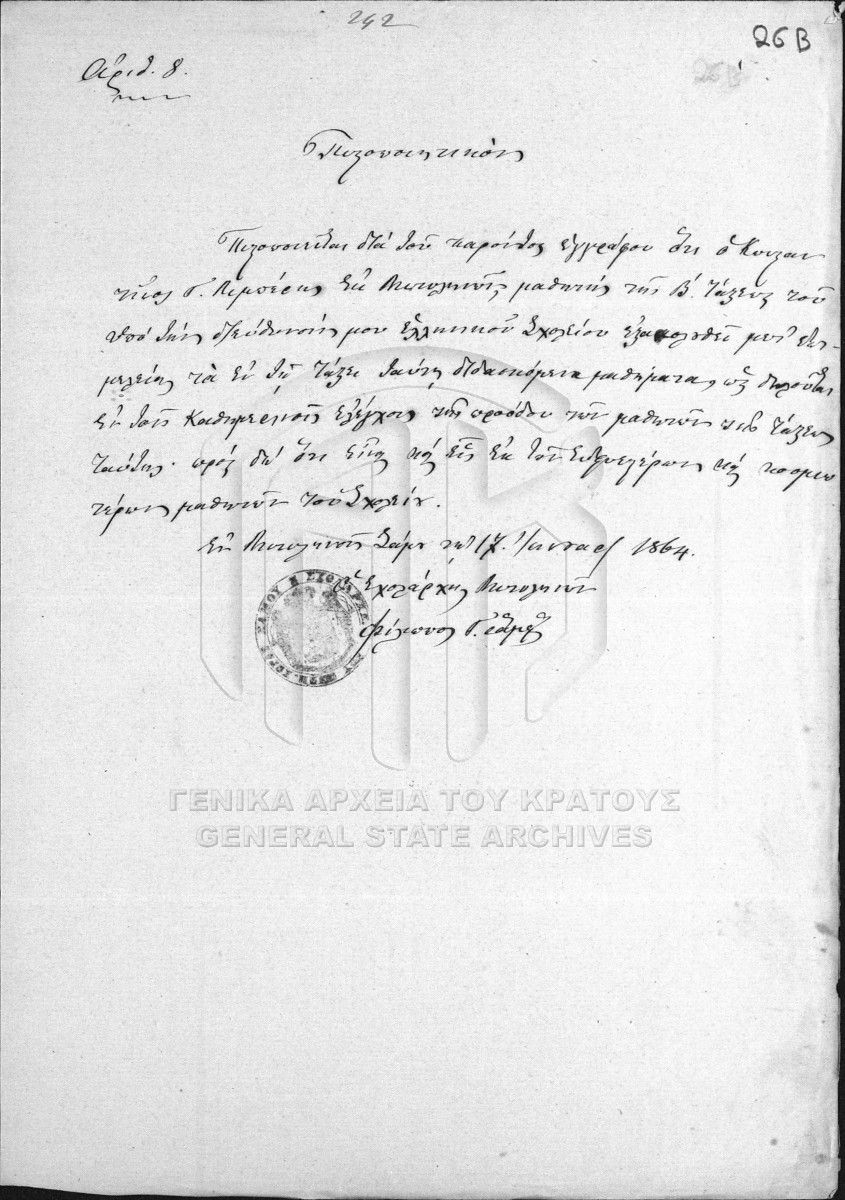 242
26 Β
26 Β
Ἀριθ. 8.
Πιστοποιητικὸν
Πιστοποιεῖται διὰ τοῦ παρόντος ἐγγράφου ὅτι ὁ Κωνσταν
τῖνος Γ. ἐκ μαθητὴς τῆς Β΄. τάξεως τοῦ
ὑπὸ τὴν διεύθυνσίν μου Ἑλληνικοῦ Σχολείου ἐξακολουθεῖ μετ' ἐπι-
μελείας τὰ ἐν τῇ τάξει ταύτῃ διδασκόμενα μαθήματα, ὡς δηλοῦται
ἐν τοῖς καθημερινοῖς ἐλέγχοις τῆς προόδου τῶν μαθητῶν τῆς τάξεως
ταύτης· πρὸς δ' ὅτι εἶναι καὶ εἷς ἐκ τῶν καὶ κοσμιω
τέρων μαθητῶν τοῦ Σχολείου.
Ἐν Σάμου τῇ 17. Ἰανουαρ 1864.
Ὁ Σχολάρχης
Φίλιππος Γ.
ΓΕΝΙΚΑ ΑΡΧΕΙΑ ΤΟΥ ΚΡΑΤΟΥΣ
GENERAL STATE ARCHIVES